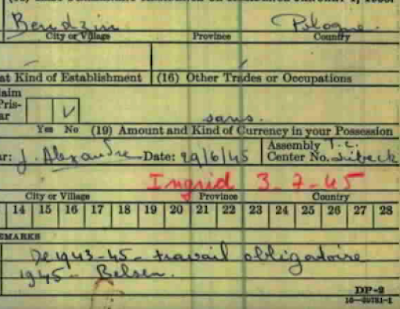 Bendzin Pologne
City or Village Province Country
at Kind of Establishment (16) Other Trades or Occupations
aim
Pris-
ar
sans.
Yes No (19) Amount and Kind of Currency in your Possession
ar: J. Alexandre Date: 29/6/45 Assembly T.C.
Center No. Lübeck
Ingrid 3-7-45
City or Village Province Country
14 15 16 17 18 19 20 21 22 23 24 25 26 27 28
EMARKS
De 1943-45- travail obligatoire
1945- Belsen.
DP-2
16-39781-1